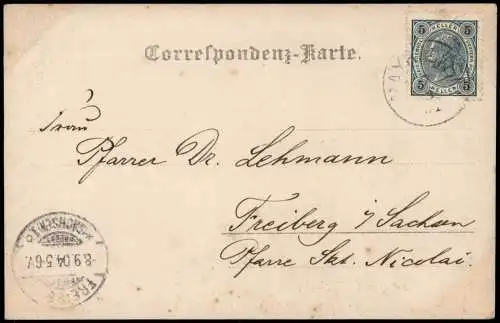 Correspondenz-Karte.
5 HELLER 5
5 HELLER 5
Frau
Pfarrer Dr. Lehmann
Freiberg i/Sachsen
Pfarre Skt. Nicolai.
8.9.04.5-6V.